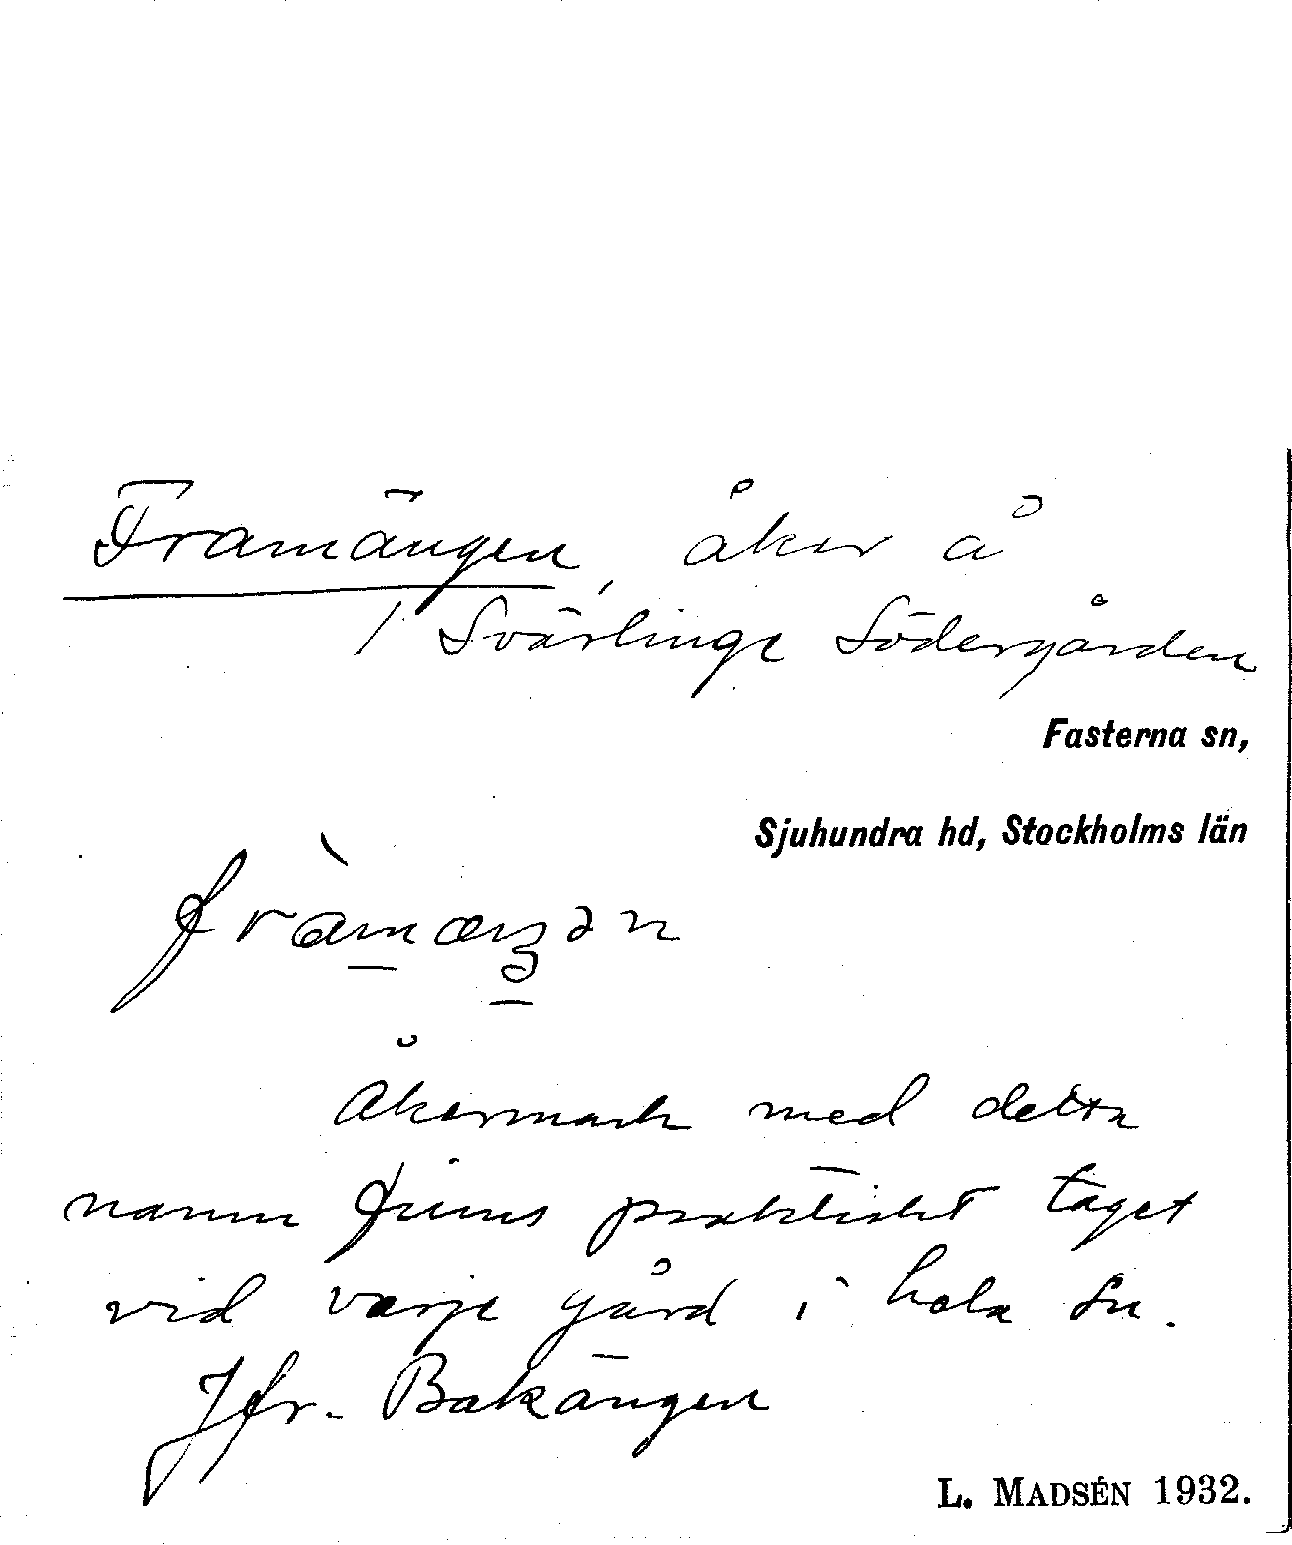 Framängen, åker å
/ Svärlinge Södergården
Fasterna sn,
Sjuhundra hd, Stockholms län
Åkermark med detta
namn finns praktiskt taget
vid varje gård i hela sn.
Jfr. Bakängen
L. MADSÉN 1932.